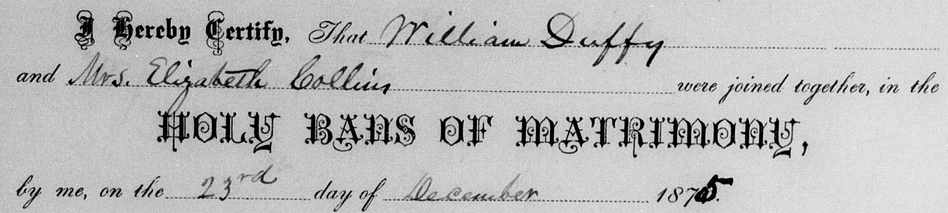 I Hereby Certify, That William Duffy
and Mrs. Elizabeth Collins were joined together, in the
HOLY BANS OF MATRIMONY,
by me, on the 23rd day of December 1875.